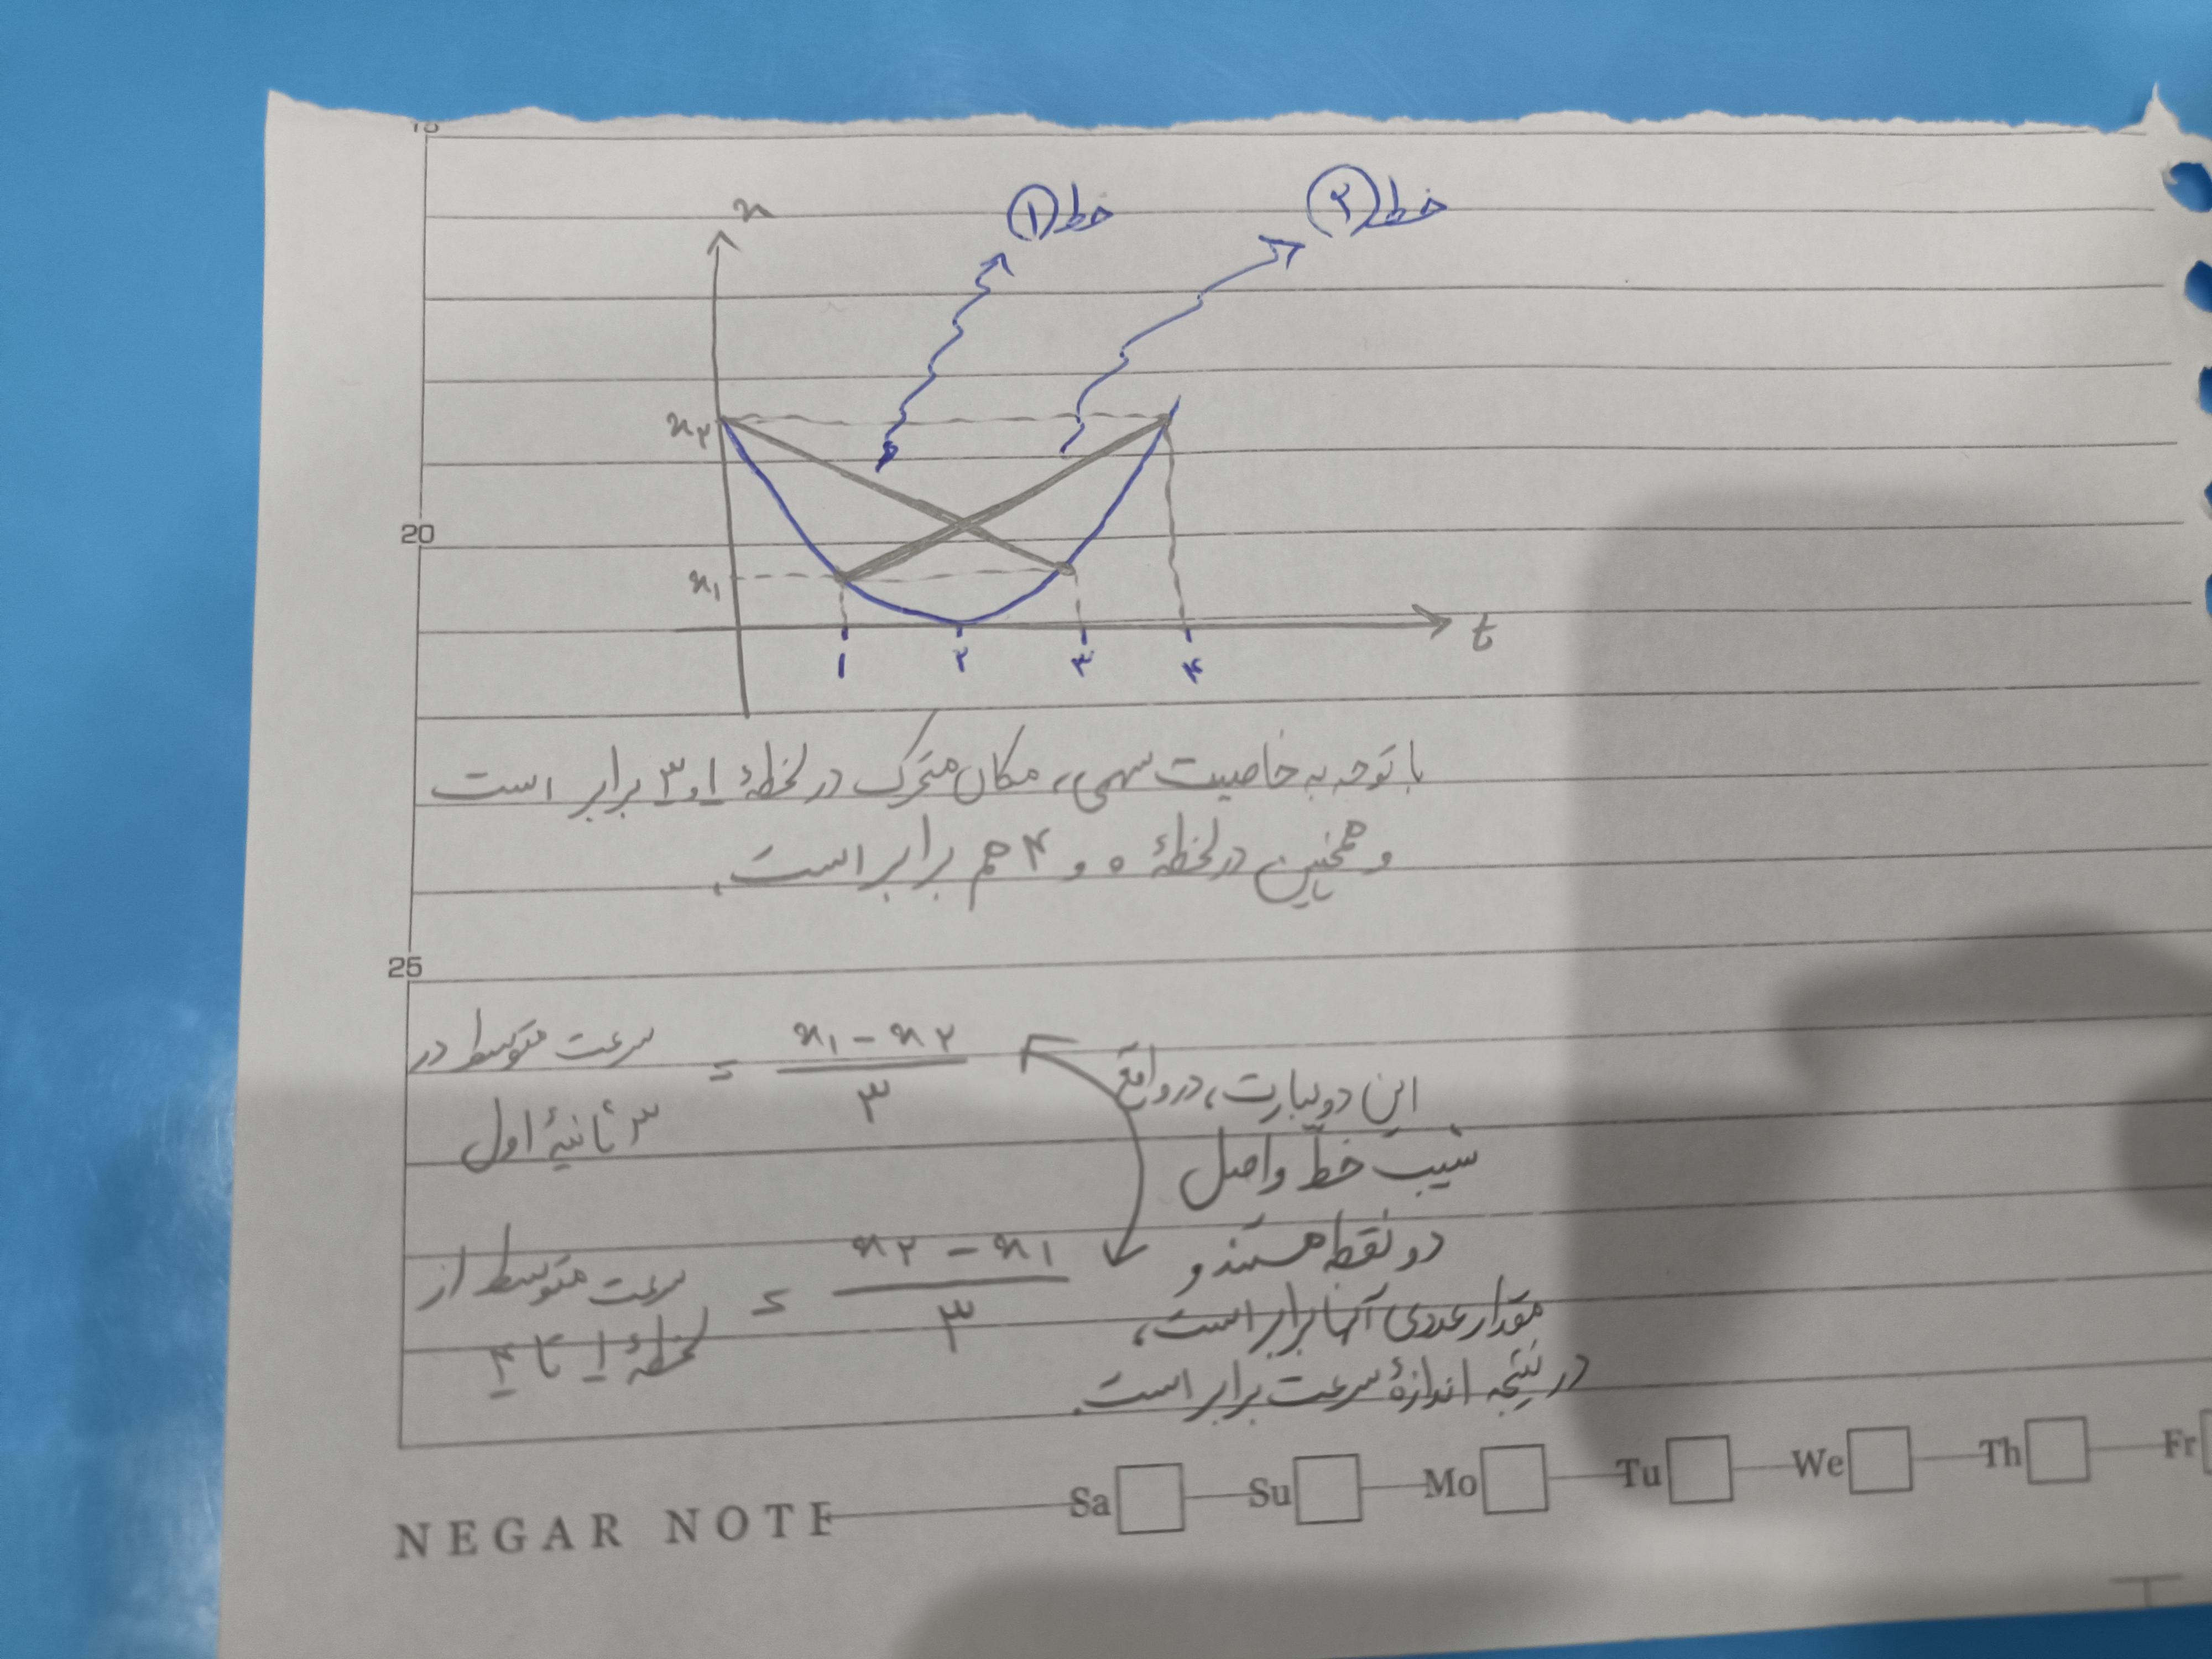 15
x
خط ①
خط ②
x۲
20
x۱
۱ ۲ ۳ ۴
t
با توجه به خاصیت سهمی، مکان متحرک در لحظهٔ ۱ و ۳ برابر است
و همچنین در لحظهٔ ۰ و ۴ هم برابر است.
25
سرعت متوسط در
۳ ثانیهٔ اول
= x۱ - x۲
۳
این دو عبارت، در واقع
شیب خطّ واصل
دو نقطه هستند و
مقدار عددی آنها برابر است،
در نتیجه اندازهٔ سرعت برابر است.
سرعت متوسط از
لحظهٔ ۱ تا ۴
= x۲ - x۱
۳
NEGAR NOTE Sa Su Mo Tu We Th Fr